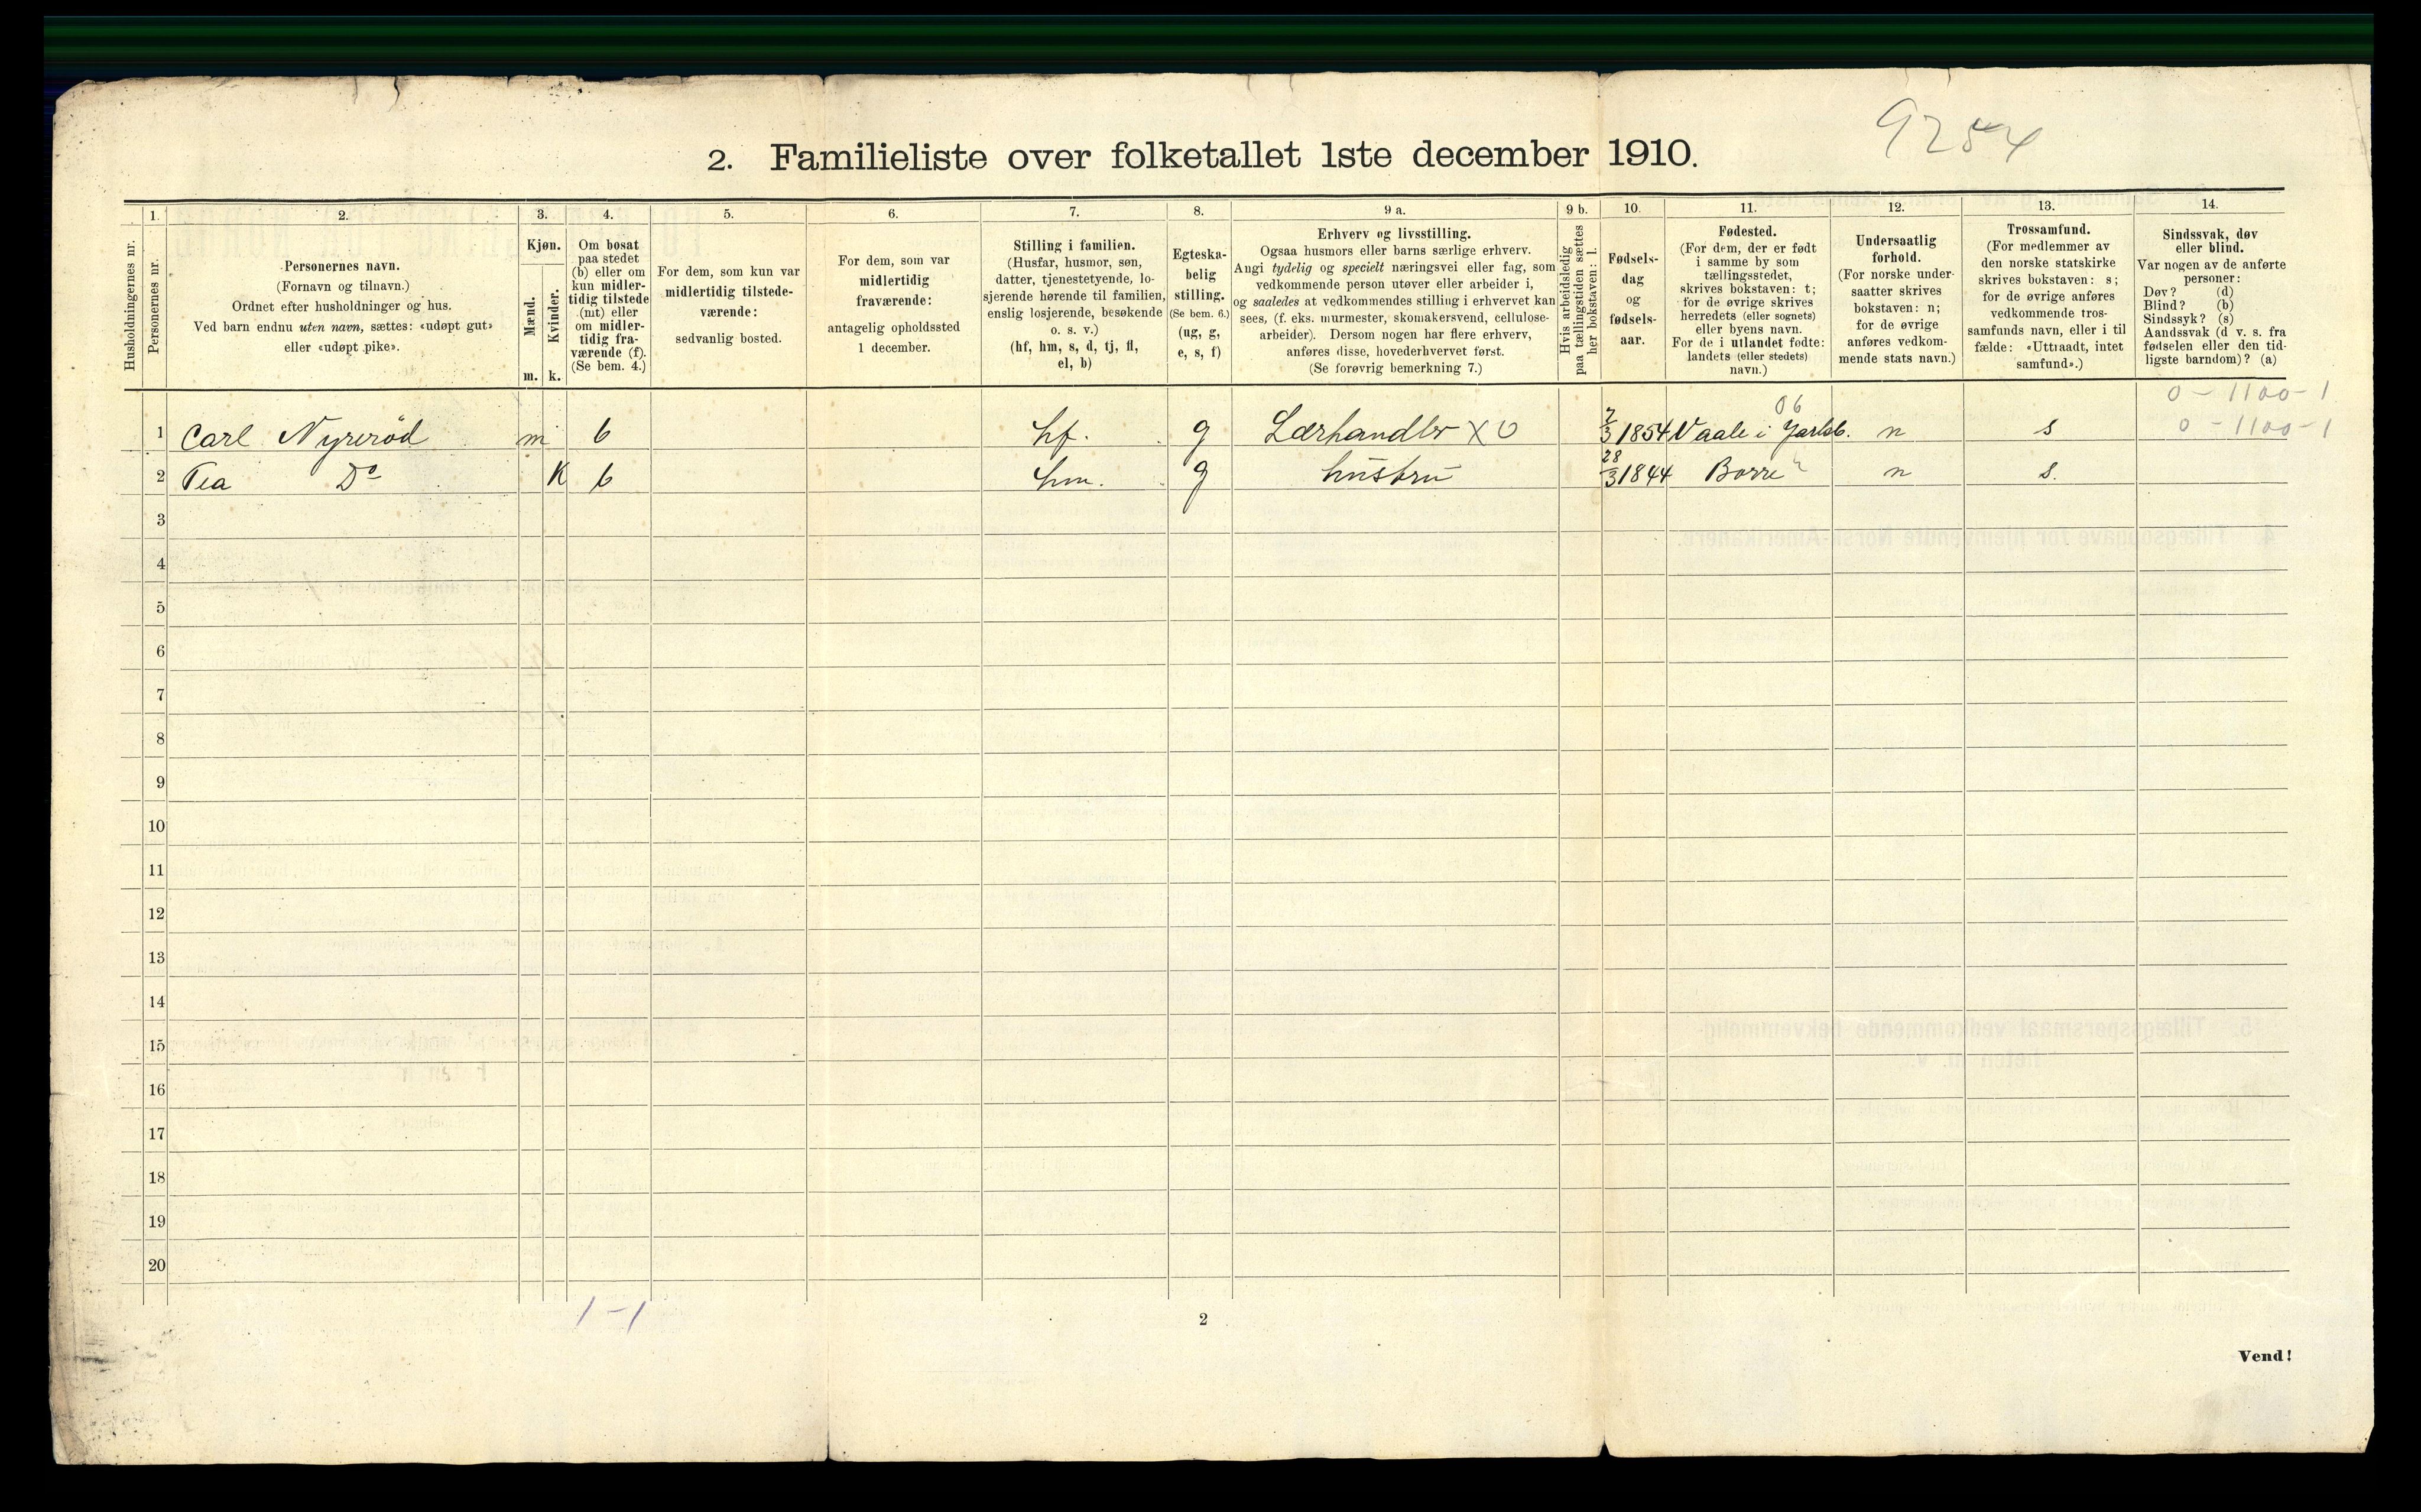 9254
2. Familieliste over folketallet 1ste december 1910.
Husholdningernes nr.
1.
Personernes nr.
2.
Personernes navn.
(Fornavn og tilnavn.)
Ordnet efter husholdninger og hus.
Ved barn endnu uten navn, sættes: «udøpt gut»
eller «udøpt pike».
3.
Kjøn.
Mænd.
Kvinder.
m. k.
4.
Om bosat
paa stedet
(b) eller om
kun midler-
tidig tilstede
(mt) eller
om midler-
tidig fra-
værende (f).
(Se bem. 4.)
5.
For dem, som kun var
midlertidig tilstede-
værende:
sedvanlig bosted.
6.
For dem, som var
midlertidig
fraværende:
antagelig opholdssted
1 december.
7.
Stilling i familien.
(Husfar, husmor, søn,
datter, tjenestetyende, lo-
sjerende hørende til familien,
enslig losjerende, besøkende
o. s. v.)
(hf, hm, s, d, tj, fl,
el, b)
8.
Egteska-
belig
stilling.
(Se bem. 6.)
(ug, g,
e, s, f)
9 a.
Erhverv og livsstilling.
Ogsaa husmors eller barns særlige erhverv.
Angi tydelig og specielt næringsvei eller fag, som
vedkommende person utøver eller arbeider i,
og saaledes at vedkommendes stilling i erhvervet kan
sees, (f. eks. murmester, skomakersvend, cellulose-
arbeider). Dersom nogen har flere erhverv,
anføres disse, hovederhvervet først.
(Se forøvrig bemerkning 7.)
9 b.
Hvis arbeidsledig
paa tællingstiden sættes
her bokstaven: l.
10.
Fødsels-
dag
og
fødsels-
aar.
11.
Fødested.
(For dem, der er født
i samme by som
tællingsstedet,
skrives bokstaven: t;
for de øvrige skrives
herredets (eller sognets)
eller byens navn.
For de i utlandet fødte:
landets (eller stedets)
navn.)
12.
Undersaatlig
forhold.
(For norske under-
saatter skrives
bokstaven: n;
for de øvrige
anføres vedkom-
mende stats navn.)
13.
Trossamfund.
(For medlemmer av
den norske statskirke
skrives bokstaven: s;
for de øvrige anføres
vedkommende tros-
samfunds navn, eller i til
fælde: «Uttraadt, intet
samfund».)
14.
Sindssvak, døv
eller blind.
Var nogen av de anførte
personer:
Døv? (d)
Blind? (b)
Sindssyk? (s)
Aandssvak (d v. s. fra
fødselen eller den tid-
ligste barndom)? (a)
0 - 1100 - 1
06
1 Carl Nyrerød m b hf. g Lærhandler X 0 7/3 1854 Vaale i Jarlsb. n s 0 - 1100 - 1
2 Tea Do K b hm. g hustru 28/3 1844 Borre n s.
3
4
5
6
7
8
9
10
11
12
13
14
15
16
17
18
19
20
1 - 1
2
Vend!